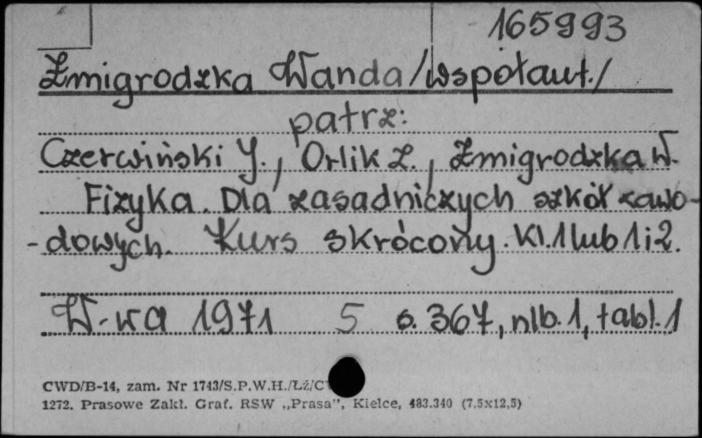 165993
Żmigrodzka Wanda /współaut./
patrz:
Czerwiński J., Orlik Z., Żmigrodzka W.
Fizyka. Dla zasadniczych szkół zawo-
-dowych. Kurs skrócony. Kl. 1 lub 1 i 2.
W-wa 1971 5 s. 367, nlb. 1, tabl. 1
CWD/B-14, zam. Nr 1743/S.P.W.H./Lź/C
1272. Prasowe Zakł. Graf. RSW „Prasa”, Kielce, 483.340 (7.5x12,5)